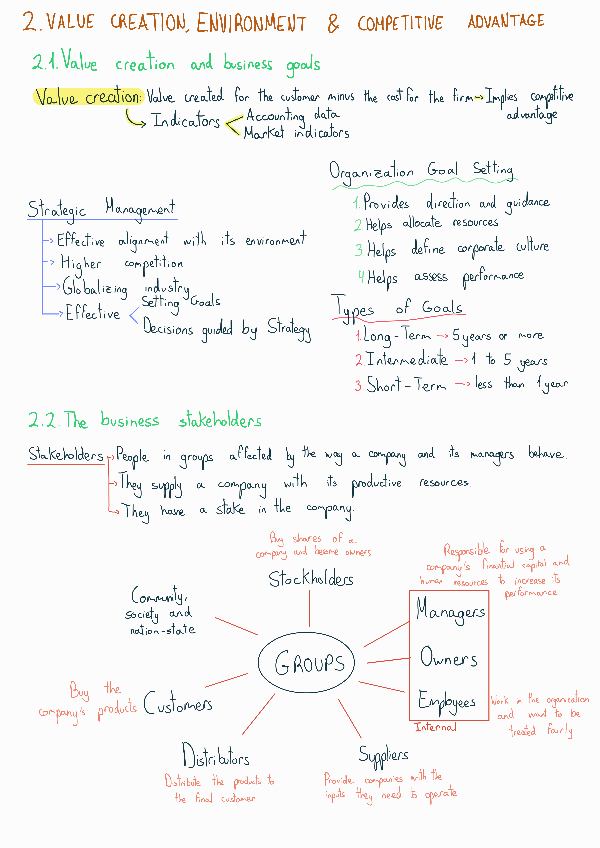 2. VALUE CREATION, ENVIRONMENT & COMPETITIVE ADVANTAGE
2.1. Value creation and business goals
Value creation: Value created for the customer minus the cost for the firm → Implies competitive advantage
→ Indicators
Accounting data
Market indicators
Strategic Management
→ Effective alignment with its environment
→ Higher competition
→ Globalizing industry
→ Effective
Setting Goals
Decisions guided by Strategy
Organization Goal Setting
1. Provides direction and guidance
2 Helps allocate resources
3 Helps define corporate culture
4 Helps assess performance
Types of Goals
1. Long-Term → 5 years or more
2 Intermediate → 1 to 5 years
3 Short-Term → less than 1 year
2.2. The business stakeholders
Stakeholders → People in groups affected by the way a company and its managers behave.
→ They supply a company with its productive resources.
→ They have a stake in the company.
Buy shares of a
company and become owners
Stockholders
Responsible for using a
company's financial capital and
human resources to increase its
performance
Community,
society and
nation-state
Managers
GROUPS
Owners
Buy the
company's products
Customers
Employees
Internal
Work in the organization
and want to be
treated fairly
Distributors
Distribute the products to
the final customer
Suppliers
Provide companies with the
inputs they need to operate